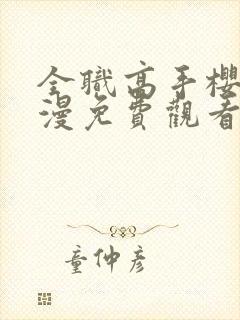 全職高手櫻
漫免費觀看
童仲彥